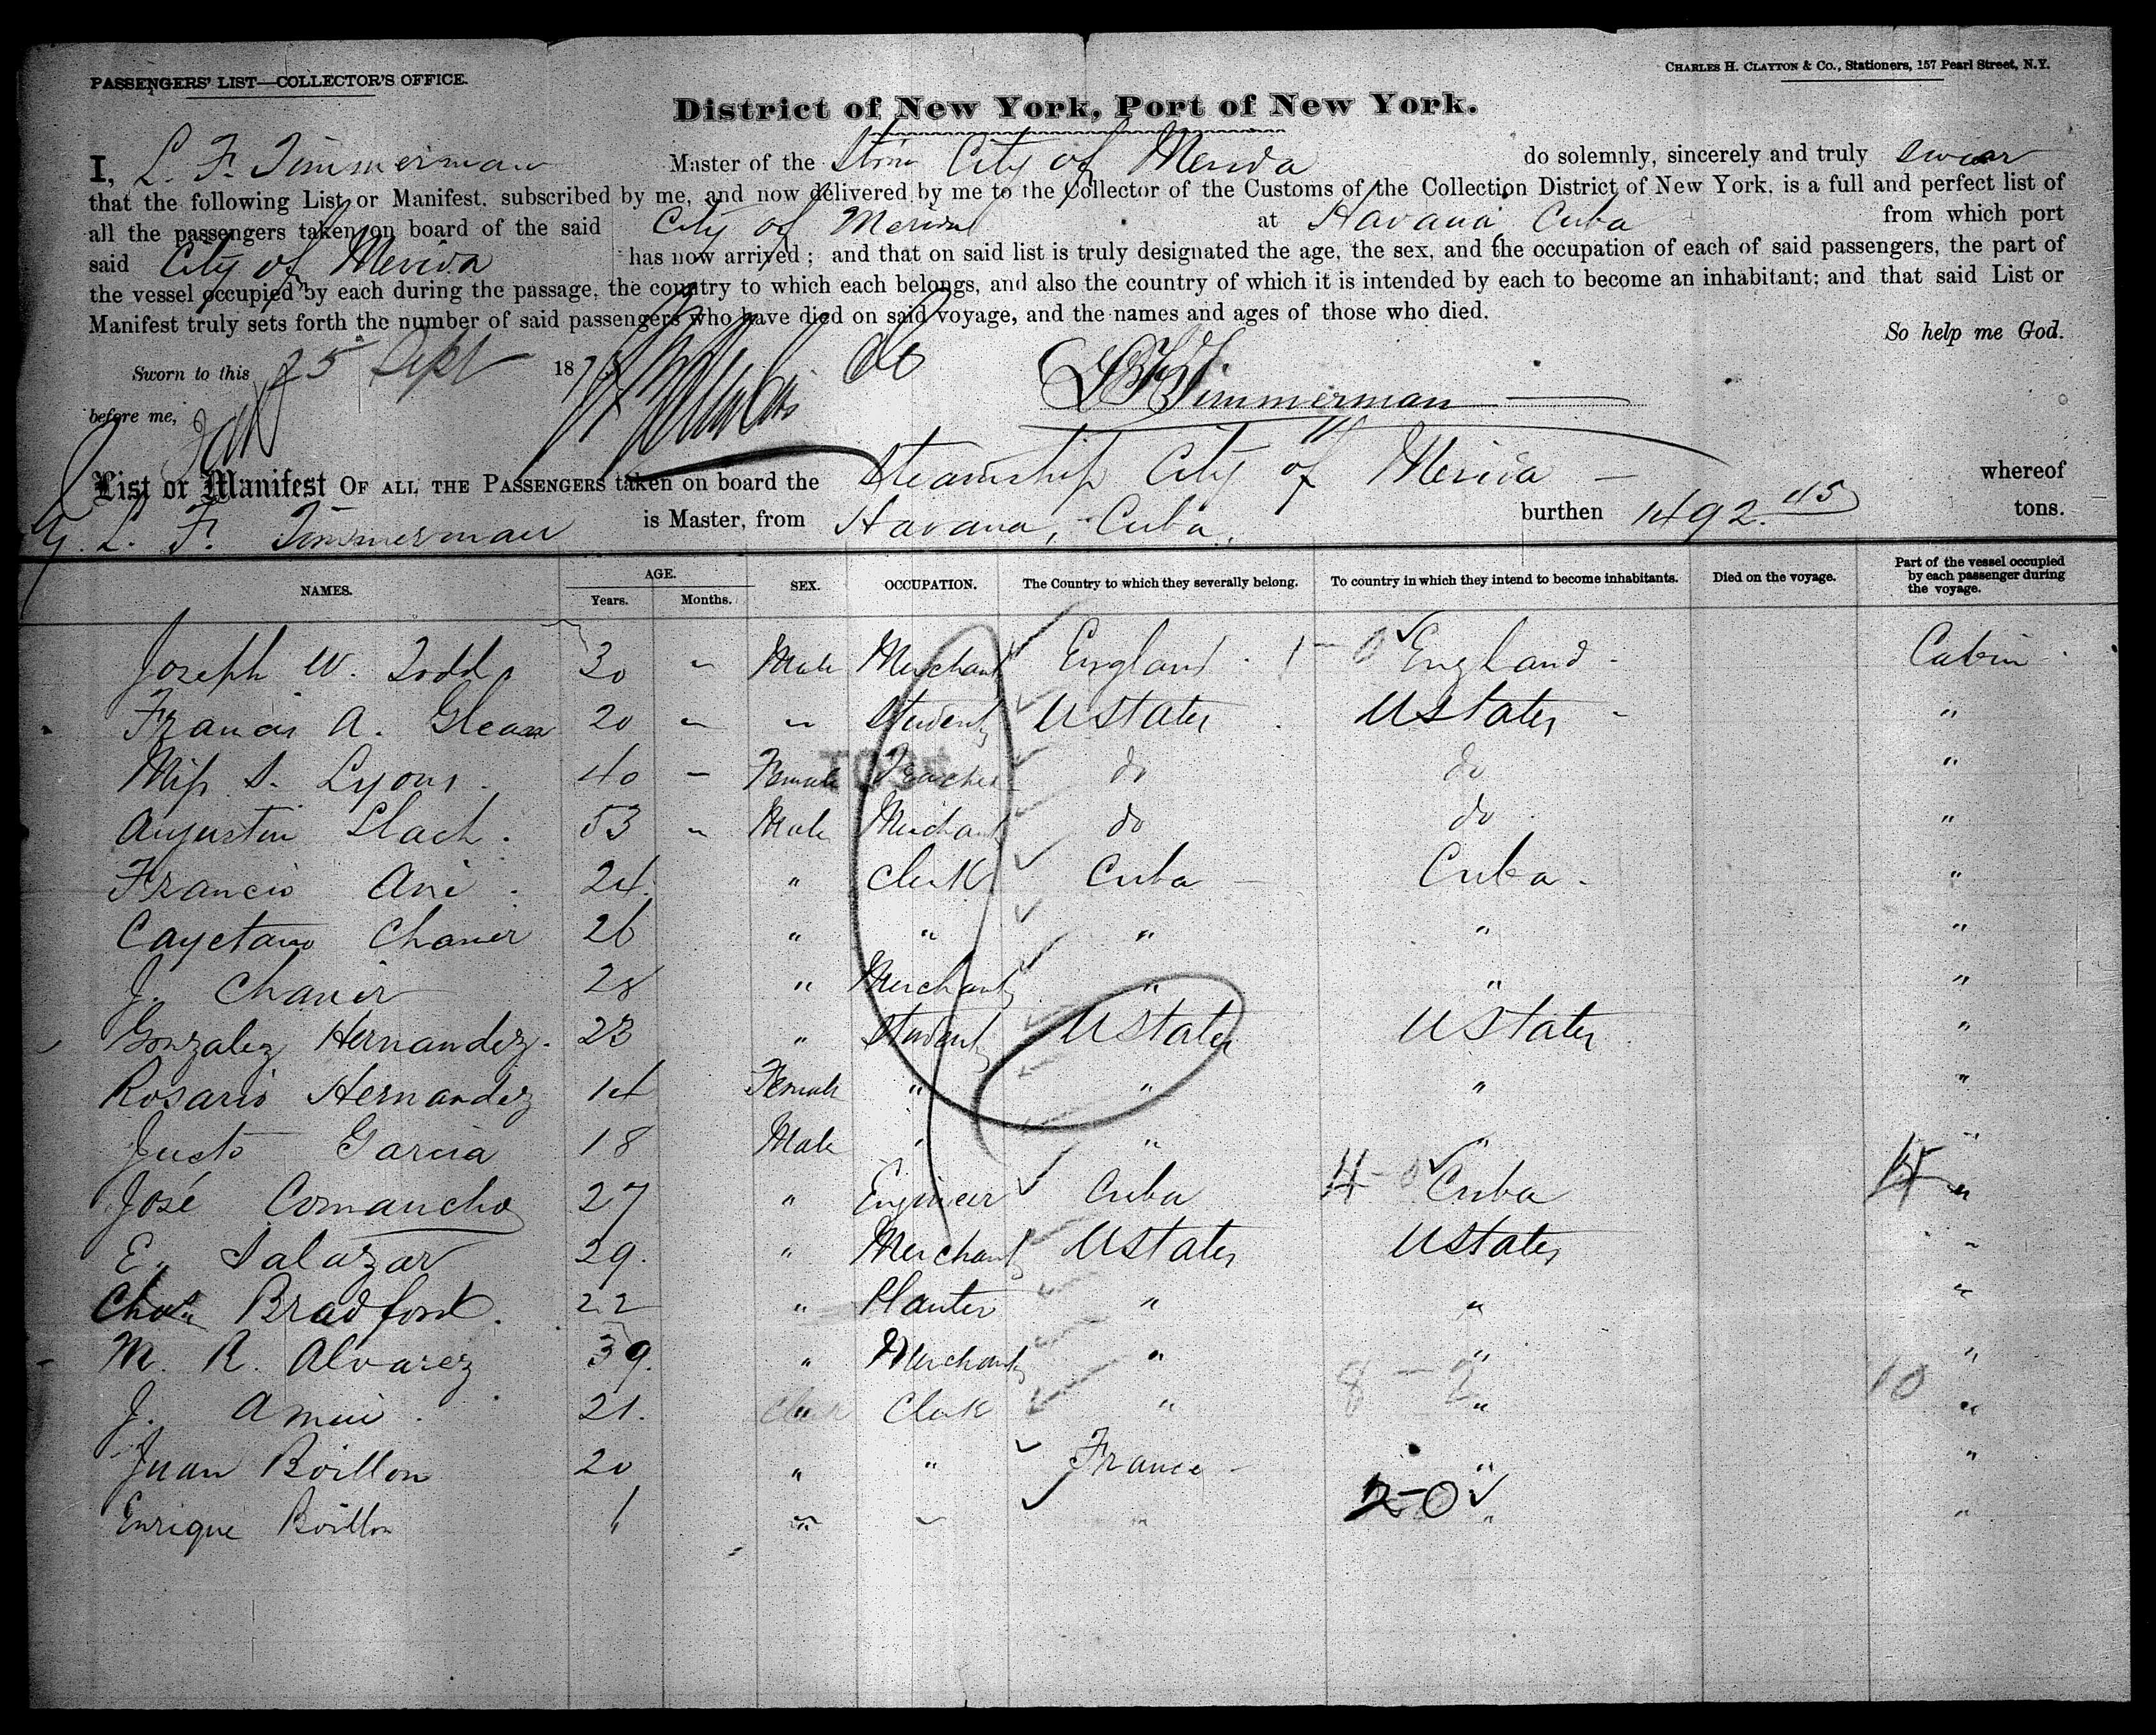 PASSENGERS' LIST—COLLECTOR'S OFFICE.
CHARLES H. CLAYTON & CO., Stationers, 157 Pearl Street, N.Y.
District of New York, Port of New York.
I, L. F. Timmerman Master of the Stmr City of Merida do solemnly, sincerely and truly swear
that the following List or Manifest, subscribed by me, and now delivered by me to the Collector of the Customs of the Collection District of New York, is a full and perfect list of
all the passengers taken on board of the said City of Merida at Havana, Cuba from which port
said City of Merida has now arrived; and that on said list is truly designated the age, the sex, and the occupation of each of said passengers, the part of
the vessel occupied by each during the passage, the country to which each belongs, and also the country of which it is intended by each to become an inhabitant; and that said List or
Manifest truly sets forth the number of said passengers who have died on said voyage, and the names and ages of those who died.
So help me God.
Sworn to this 25 Sept 187
before me,
L F Timmerman
List or Manifest OF ALL THE PASSENGERS taken on board the Steamship City of Merida — whereof
L. F. Timmerman is Master, from Havana, Cuba, burthen 1492.45 tons.
NAMES. AGE. Years. Months. SEX. OCCUPATION. The Country to which they severally belong. To country in which they intend to become inhabitants. Died on the voyage. Part of the vessel occupied by each passenger during the voyage.
Joseph W. Todd 30 " Male Merchant England 1-0 England Cabin
Francis A. 20 " " Student U States U States "
Miss S. Lyons 40 - Female Teacher do do "
Augustin Llach 53 " Male Merchant do do "
Francis 24 " Clerk Cuba Cuba "
Cayetano 26 " " " " "
J. 28 " Merchant " " "
Gonzalez Hernandez 23 " Student U States U States "
Rosario Hernandez 14 Female " " " "
Justo Garcia 18 Male " " " "
José Comancho 27 " Engineer Cuba 4-0 Cuba 4 "
E. Salazar 29. " Merchant U States U States "
Chas Bradford. 22 " Planter " " "
M. R. Alvarez 39. " Merchant " " "
J. 21. " Clerk " 8-2 " 10 "
Juan Boillon 20 " " France " "
Enrique Boillon 1 " " " " 2-0 " "